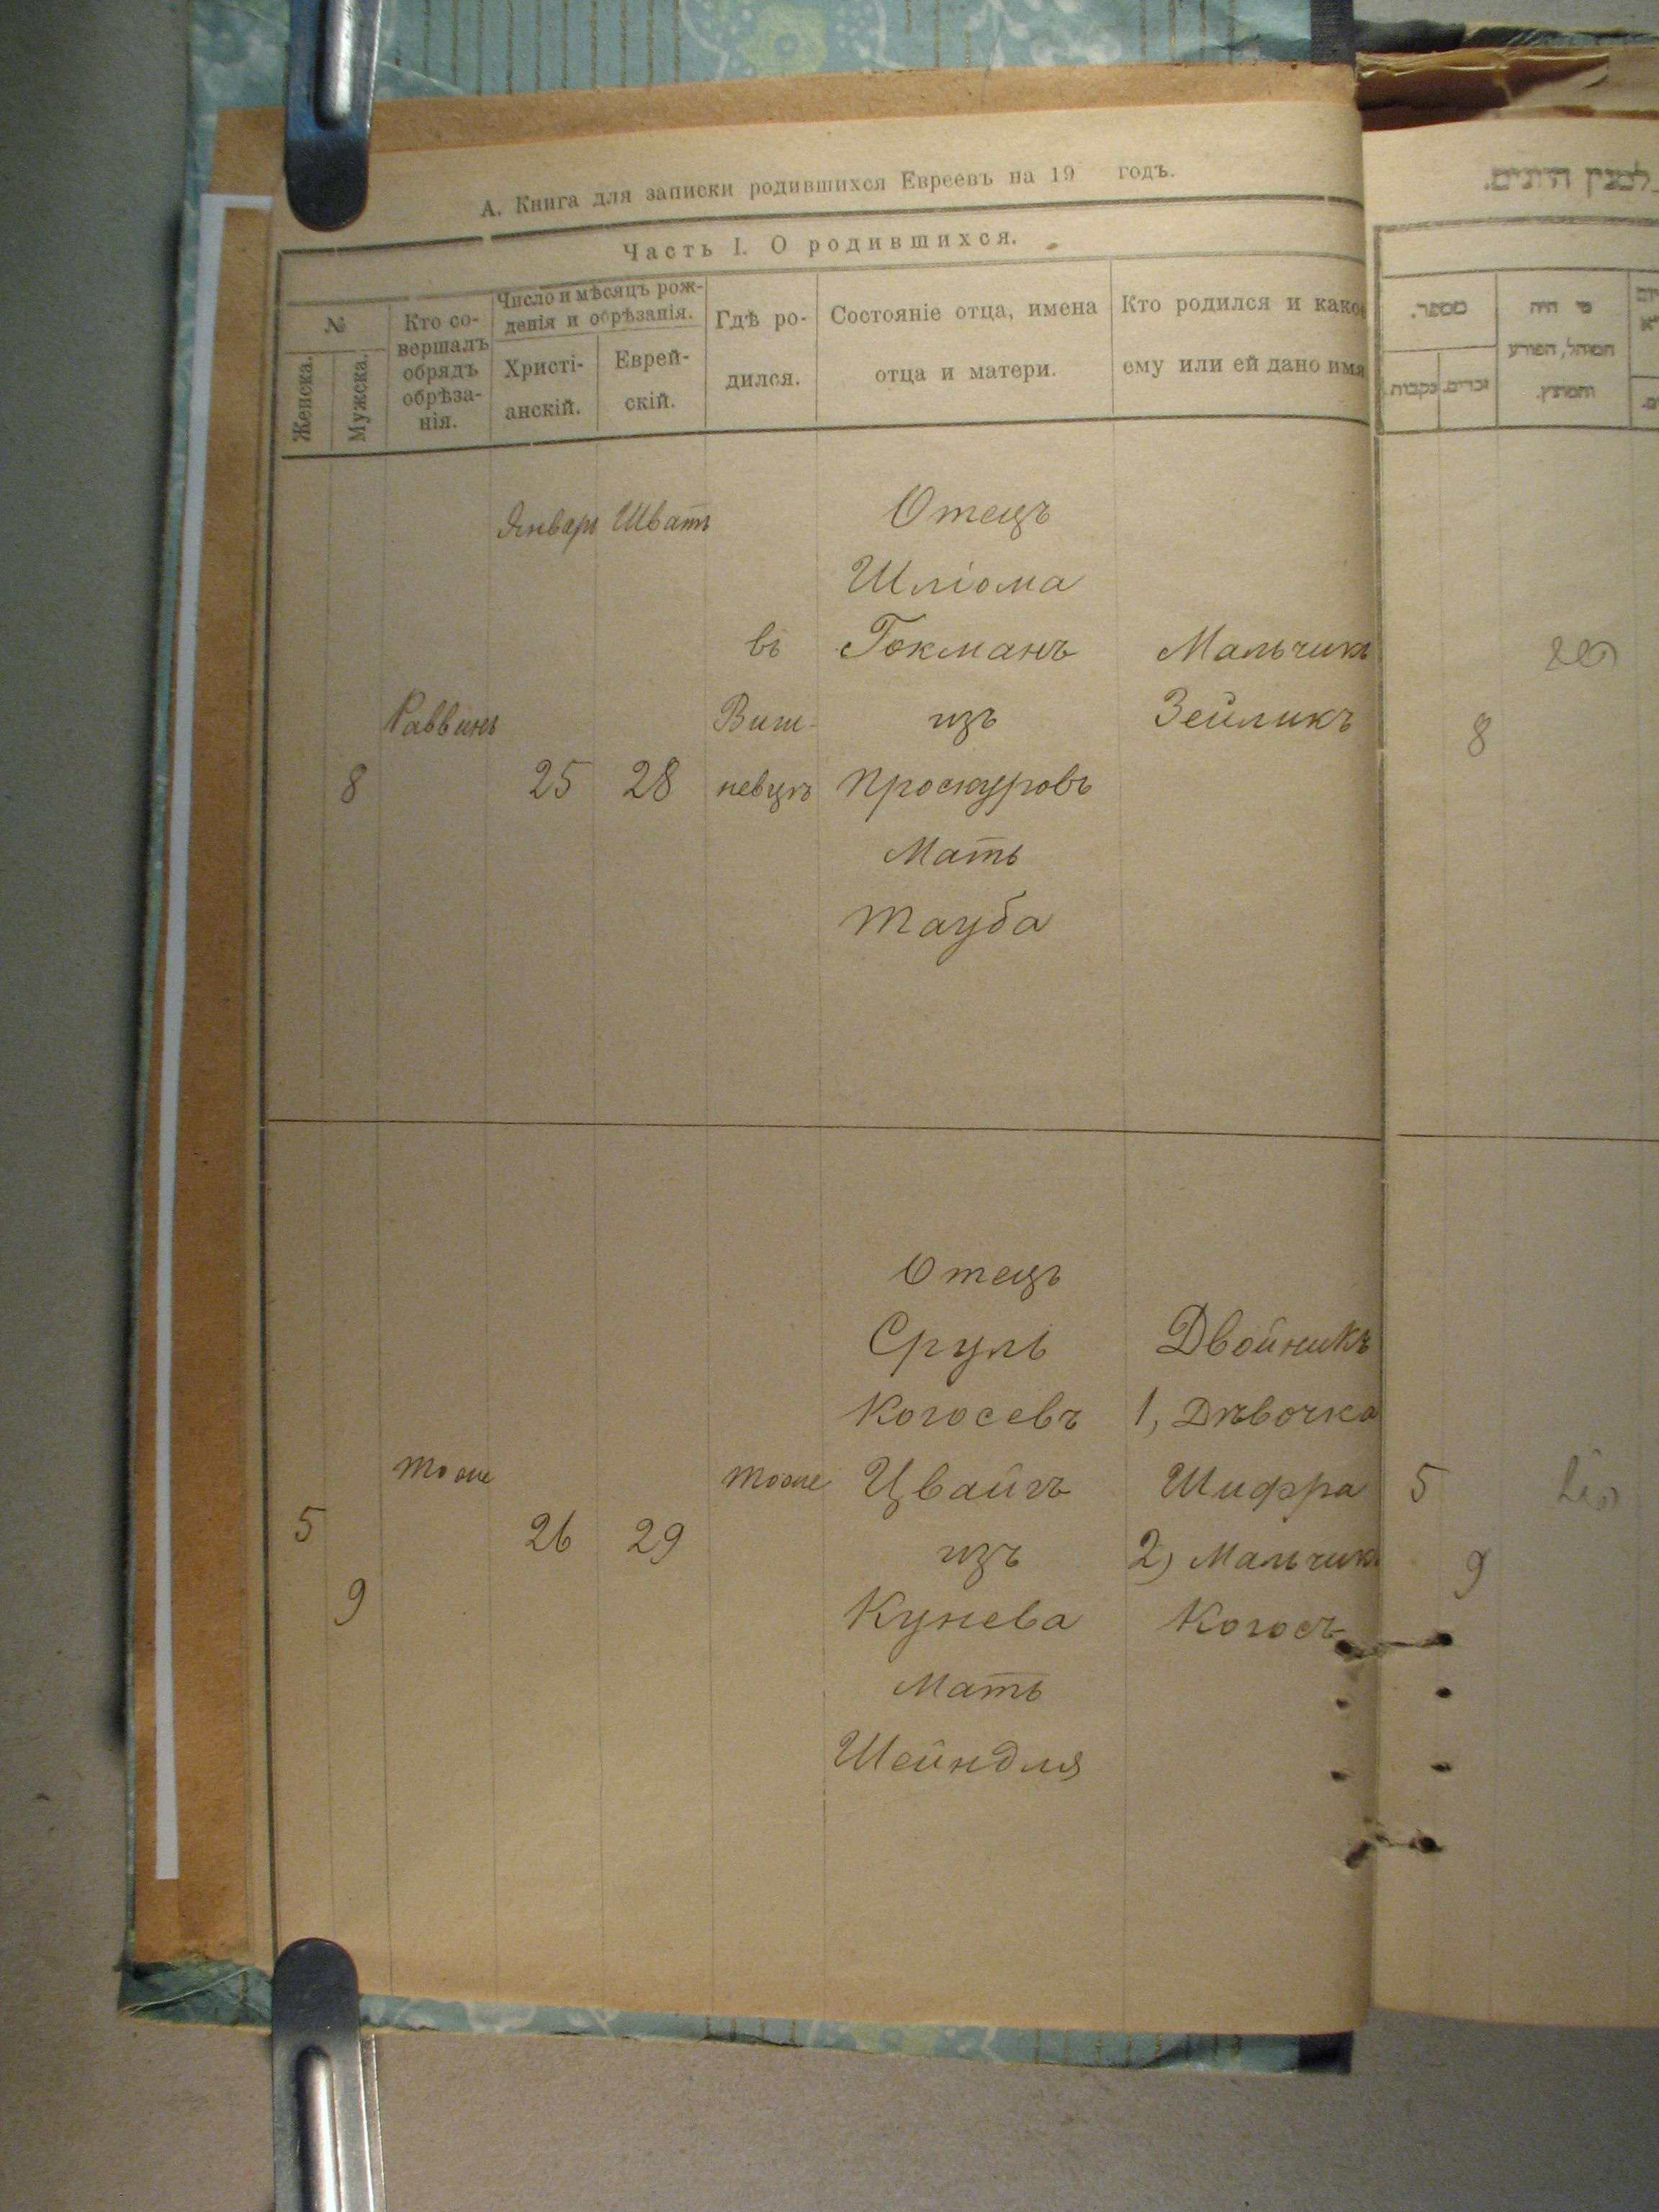 А. Книга для записки родившихся Евреевъ на 19 годъ.
Часть I. О родившихся.
№
Женска.
Мужска.
Кто со-
вершалъ
обрядъ
обрѣза-
нія.
Число и мѣсяцъ рож-
денія и обрѣзанія.
Христі-
анскій.
Еврей-
скій.
Гдѣ ро-
дился.
Состояніе отца, имена
отца и матери.
Кто родился и какое
ему или ей дано имя
8
Раввинъ
Январь
25
Шватъ
28
въ
Виш-
невцѣ
Отецъ
Шліома
Токманъ
изъ
Проскуровъ
Мать
Тауба
Мальчикъ
Зейликъ
5
9
тоже
26
29
тоже
Отецъ
Сруль
Когосевъ
Цвайгъ
изъ
Кунева
Мать
Шейндля
Двойникъ
1, Дѣвочка
Шифра
2) Мальчикъ
Когосъ
מספר.
נקבות.
זכרים.
מי היה
המוהל, הפורע
והמוצץ.
8
5
9